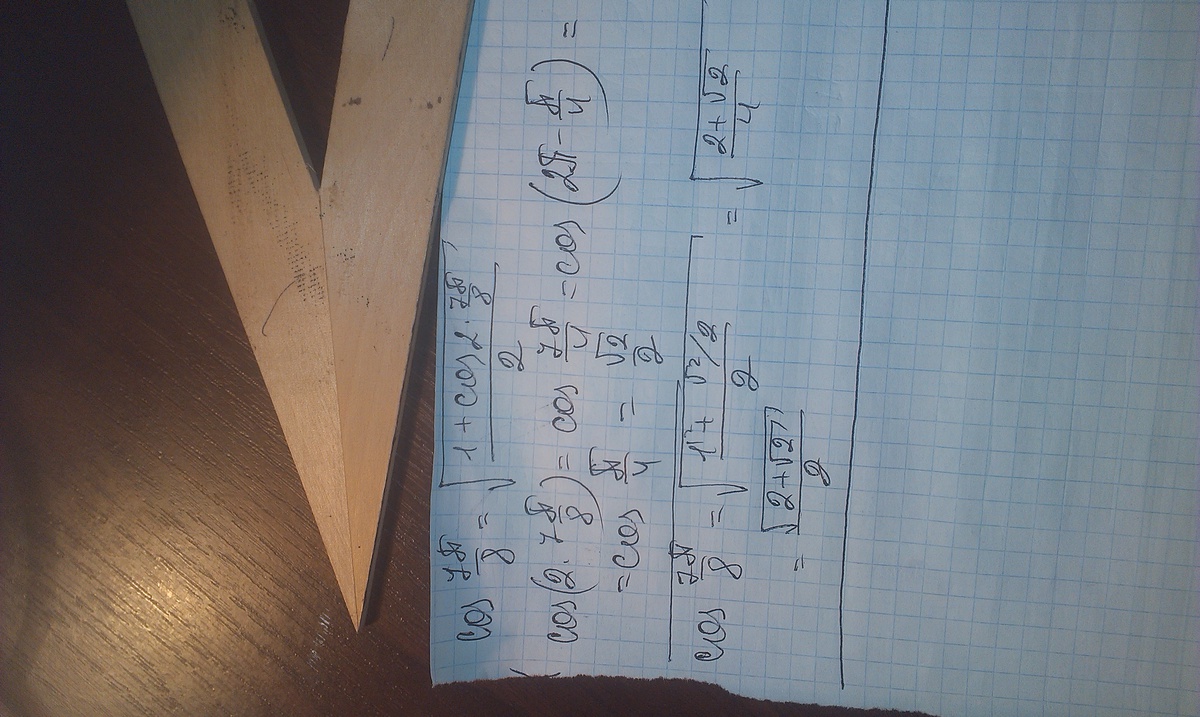 cos 7π/8 = √((1 + cos 2 · 7π/8)/2)
(cos(2 · 7π/8) = cos 7π/4 = cos(2π - π/4) =
= cos π/4 = √2/2
cos 7π/8 = √((1 + √2/2)/2) = √((2+√2)/4)
= √(2+√2)/2